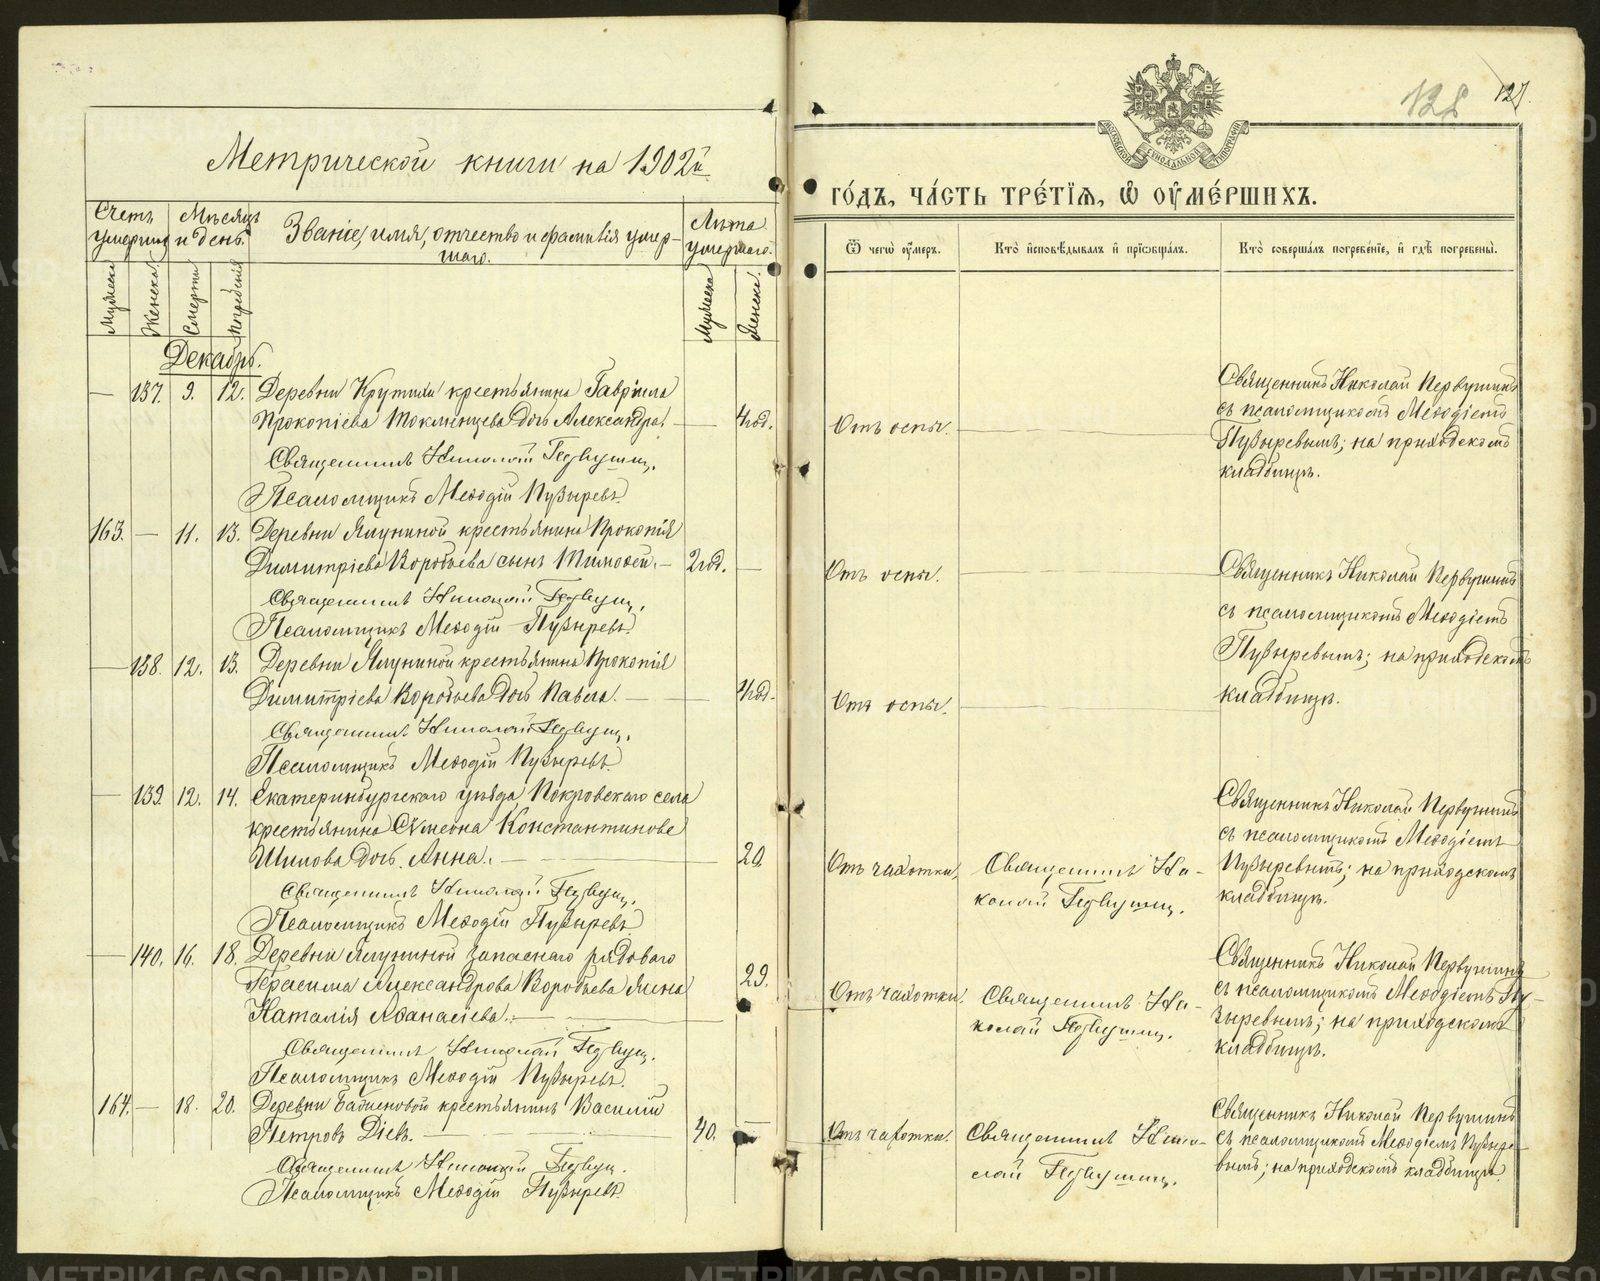 Метрической книги на 1902й
Счетъ умершихъ
Мѣсяцъ и день.
Званіе, имя, отчество и фамилія умершаго.
Лѣта умершаго.
Мужеска
Женска
Смерти
Погребенія
Мужеска
Женска.
Декабрь.
— 137. 9. 12. Деревни Крутихи крестьянина Гавріила
Прокопіева Токманцева дочь Александра. — 4 год.
Священникъ Николай Первушинъ.
Псаломщикъ Меѳодій Пузыревъ.
163. — 11. 13. Деревни Ялуниной крестьянина Прокопія
Димитріева Воробьева сынъ Тимоѳей. — 2 год. —
Священникъ Николай Первушинъ.
Псаломщикъ Меѳодій Пузыревъ.
— 138. 12. 13. Деревни Ялуниной крестьянина Прокопія
Димитріева Воробьева дочь Павла. — — 4 год.
Священникъ Николай Первушинъ.
Псаломщикъ Меѳодій Пузыревъ.
— 139. 12. 14. Екатеринбургскаго уѣзда Покровскаго села
крестьянина Сѵмеона Константинова
Шипова дочь Анна. — 20.
Священникъ Николай Первушинъ.
Псаломщикъ Меѳодій Пузыревъ.
— 140. 16. 18. Деревни Ялуниной запаснаго рядоваго
Герасима Александрова Воробьева жена
Наталія Аѳанасіева. — 29.
Священникъ Николай Первушинъ.
Псаломщикъ Меѳодій Пузыревъ.
164. — 18. 20. Деревни Бабиновой крестьянинъ Василій
Петровъ Діевъ. — 40. —
Священникъ Николай Первушинъ.
Псаломщикъ Меѳодій Пузыревъ.
128 127.
МОСКОВСКОЙ СѴНОДАЛЬНОЙ ТИПОГРАФІИ
го́дъ, ча́сть тре́тїѧ, ѡ҆ ᲂу҆ме́ршихъ.
Ѿ чегѡ̀ ᲂу҆́меръ.
Кто̀ и҆сповѣ́дывалъ и҆ прїѡбща́лъ.
Кто̀ соверша́лъ погребе́нїе, и҆ гдѣ̀ погребены̀.
Отъ оспы. —
Священникъ Николай Первушинъ
съ псаломщикомъ Меѳодіемъ
Пузыревымъ; на приходскомъ
кладбищѣ.
Отъ оспы. —
Священникъ Николай Первушинъ
съ псаломщикомъ Меѳодіемъ
Пузыревымъ; на приходскомъ
кладбищѣ.
Отъ оспы. —
Отъ чахотки.
Священникъ Ни-
колай Первушинъ.
Священникъ Николай Первушинъ
съ псаломщикомъ Меѳодіемъ
Пузыревымъ; на приходскомъ
кладбищѣ.
Отъ чахотки.
Священникъ Ни-
колай Первушинъ.
Священникъ Николай Первушинъ
съ псаломщикомъ Меѳодіемъ Пу-
зыревымъ; на приходскомъ
кладбищѣ.
Отъ чахотки.
Священникъ Нико-
лай Первушинъ.
Священникъ Николай Первушинъ
съ псаломщикомъ Меѳодіемъ Пузыре-
вымъ; на приходскомъ кладбищѣ.
METRIKI.GASO-URAL.RU